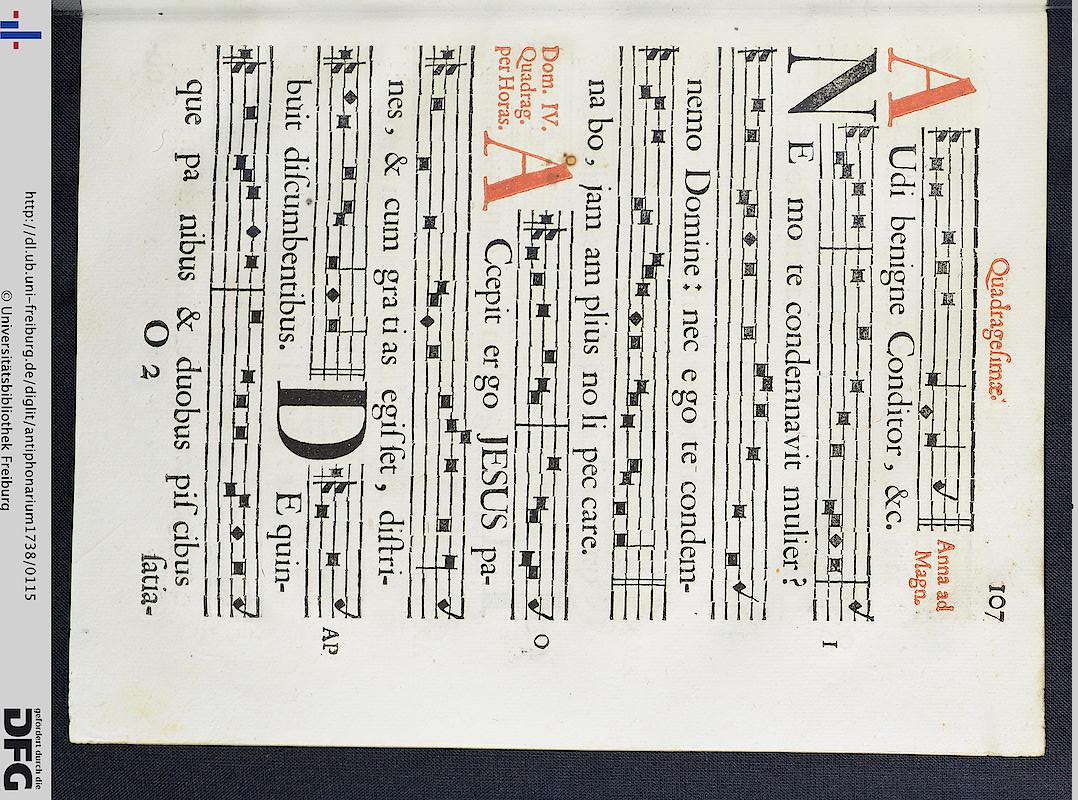 Quadragesimæ. 107
AUdi benigne Conditor, &c. Anna ad
Magn.
NE mo te condemnavit mulier? I
nemo Domine: nec e go te condem-
na bo, jam am plius no li pec care.
Dom. IV.
Quadrag.
per Horas.
ACcepit er go JESUS pa- O
nes, & cum gra ti as egiſ ſet, diſtri-
buit diſcumbentibus. DE quin- AP
que pa nibus & duobus piſ cibus
O 2 ſatia-
http://dl.ub.uni-freiburg.de/diglit/antiphonarium1738/0115
© Universitätsbibliothek Freiburg
gefördert durch die
DFG